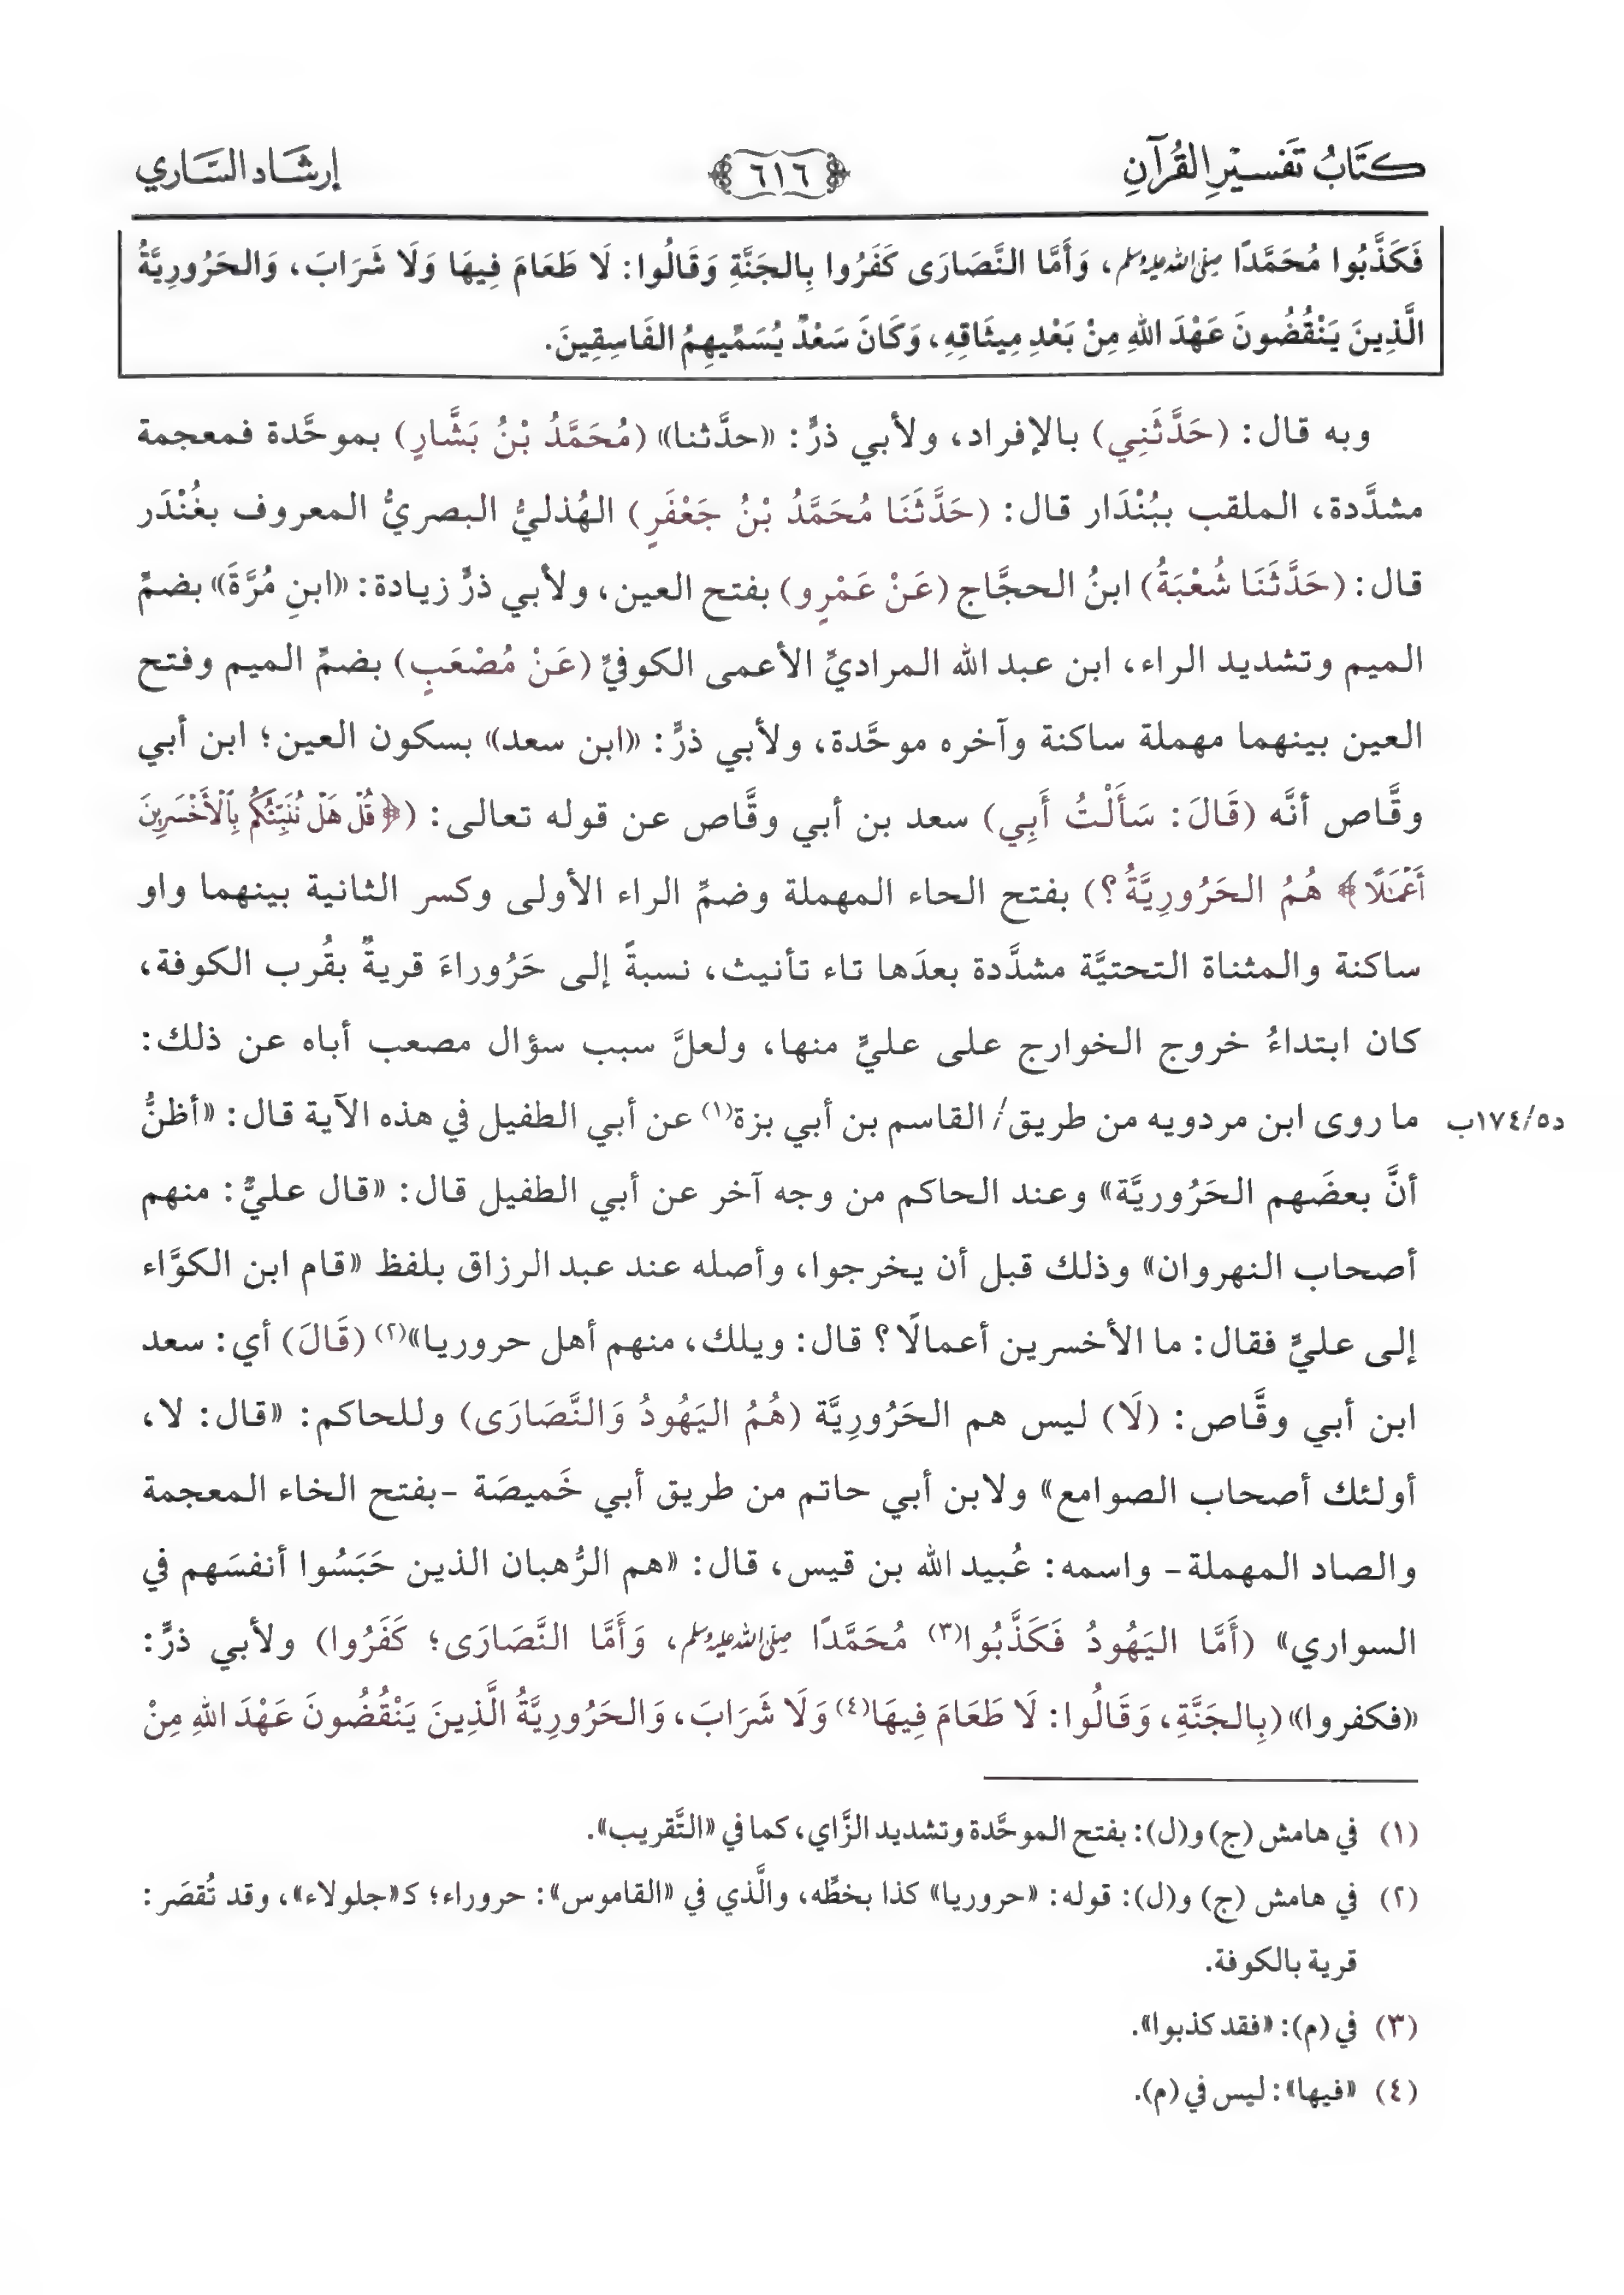 كِتَابُ تَفسيْرِ القُرآنِ
٦١٦
إرشَاد السَّاري
فَكَذَّبُوا مُحَمَّدًا ﷺ، وَأَمَّا النَّصَارَى كَفَرُوا بِالجَنَّةِ وَقَالُوا: لَا طَعَامَ فِيهَا وَلَا شَرَابَ، وَالحَرُورِيَّةُ
الَّذِينَ يَنْقُضُونَ عَهْدَ اللهِ مِنْ بَعْدِ مِيثَاقِهِ، وَكَانَ سَعْدٌ يُسَمِّيهِمُ الفَاسِقِينَ.
وبه قال: (حَدَّثَنِي) بالإفراد، ولأبي ذرٍّ: «حدَّثنا» (مُحَمَّدُ بْنُ بَشَّارٍ) بموحَّدة فمعجمة
مشدَّدة، الملقب ببُنْدَار قال: (حَدَّثَنَا مُحَمَّدُ بْنُ جَعْفَرٍ) الهُذليُّ البصريُّ المعروف بغُنْدَر
قال: (حَدَّثَنَا شُعْبَةُ) ابنُ الحجَّاج (عَنْ عَمْرٍو) بفتح العين، ولأبي ذرٍّ زيادة: «ابنِ مُرَّةَ» بضمِّ
الميم وتشديد الراء، ابن عبد الله المراديِّ الأعمى الكوفيِّ (عَنْ مُصْعَبٍ) بضمِّ الميم وفتح
العين بينهما مهملة ساكنة وآخره موحَّدة، ولأبي ذرٍّ: «ابن سعد» بسكون العين؛ ابن أبي
وقَّاص أنَّه (قَالَ: سَأَلْتُ أَبِي) سعد بن أبي وقَّاص عن قوله تعالى: (﴿قُلْ هَلْ نُنَبِّئُكُم بِٱلْأَخْسَرِينَ
أَعْمَٰلًا﴾ هُمُ الحَرُورِيَّةُ؟) بفتح الحاء المهملة وضمِّ الراء الأولى وكسر الثانية بينهما واو
ساكنة والمثناة التحتيَّة مشدَّدة بعدَها تاء تأنيث، نسبةً إلى حَرُوراءَ قريةٌ بقُرب الكوفة،
كان ابتداءُ خروج الخوارج على عليٍّ منها، ولعلَّ سبب سؤال مصعب أباه عن ذلك:
ما روى ابن مردويه من طريق/ القاسم بن أبي بزة(١) عن أبي الطفيل في هذه الآية قال: «أظنُّ
د١٧٤/٥ب
أنَّ بعضَهم الحَرُوريَّة» وعند الحاكم من وجه آخر عن أبي الطفيل قال: «قال عليٌّ: منهم
أصحاب النهروان» وذلك قبل أن يخرجوا، وأصله عند عبد الرزاق بلفظ «قام ابن الكوَّاء
إلى عليٍّ فقال: ما الأخسرين أعمالًا؟ قال: ويلك، منهم أهل حروريا»(٢) (قَالَ) أي: سعد
ابن أبي وقَّاص: (لَا) ليس هم الحَرُورِيَّة (هُمُ اليَهُودُ وَالنَّصَارَى) وللحاكم: «قال: لا،
أولئك أصحاب الصوامع» ولابن أبي حاتم من طريق أبي خَميصَة -بفتح الخاء المعجمة
والصاد المهملة- واسمه: عُبيد الله بن قيس، قال: «هم الرُّهبان الذين حَبَسُوا أنفسَهم في
السواري» (أَمَّا اليَهُودُ فَكَذَّبُوا(٣) مُحَمَّدًا ﷺ، وَأَمَّا النَّصَارَى؛ كَفَرُوا) ولأبي ذرٍّ:
«فكفروا» (بِالجَنَّةِ، وَقَالُوا: لَا طَعَامَ فِيهَا(٤) وَلَا شَرَابَ، وَالحَرُورِيَّةُ الَّذِينَ يَنْقُضُونَ عَهْدَ اللهِ مِنْ
(١) في هامش (ج) و(ل): بفتح الموحَّدة وتشديد الزَّاي، كما في «التَّقريب».
(٢) في هامش (ج) و(ل): قوله: «حروريا» كذا بخطِّه، والَّذي في «القاموس»: حروراء؛ كـ«جلولاء»، وقد تُقصَر:
قرية بالكوفة.
(٣) في (م): «فقد كذبوا».
(٤) «فيها»: ليس في (م).